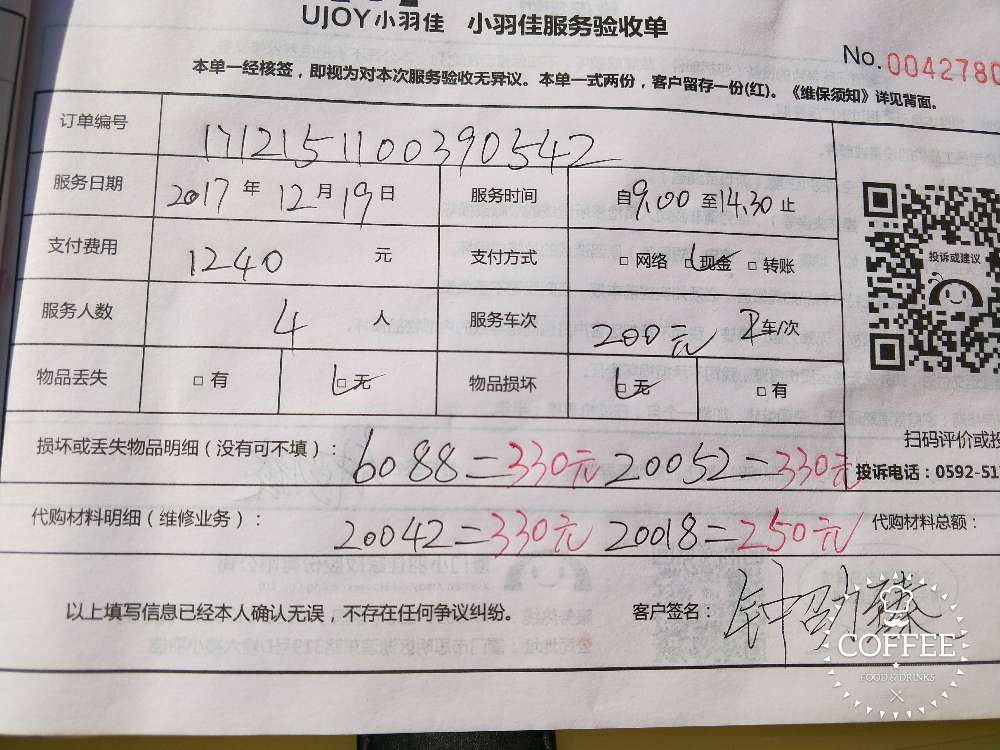 UJOY小羽佳 小羽佳服务验收单
No. 0042780
本单一经核签，即视为对本次服务验收无异议。本单一式两份，客户留存一份(红)。《维保须知》详见背面。
订单编号 1712151100390542
服务日期 2017年12月19日 服务时间 自9.00至14.30止
支付费用 1240 元 支付方式 □网络 □现金 □转账
投诉或建议
服务人数 4 人 服务车次 200元 车/次
物品丢失 □有 □无 物品损坏 □无 □有
扫码评价或投
损坏或丢失物品明细（没有可不填）： 6088=330元 20052=330元
投诉电话：0592-51
代购材料明细（维修业务）： 20042=330元 20018=250元 代购材料总额：
以上填写信息已经本人确认无误，不存在任何争议纠纷。 客户签名：
COFFEE
FOOD & DRINKS